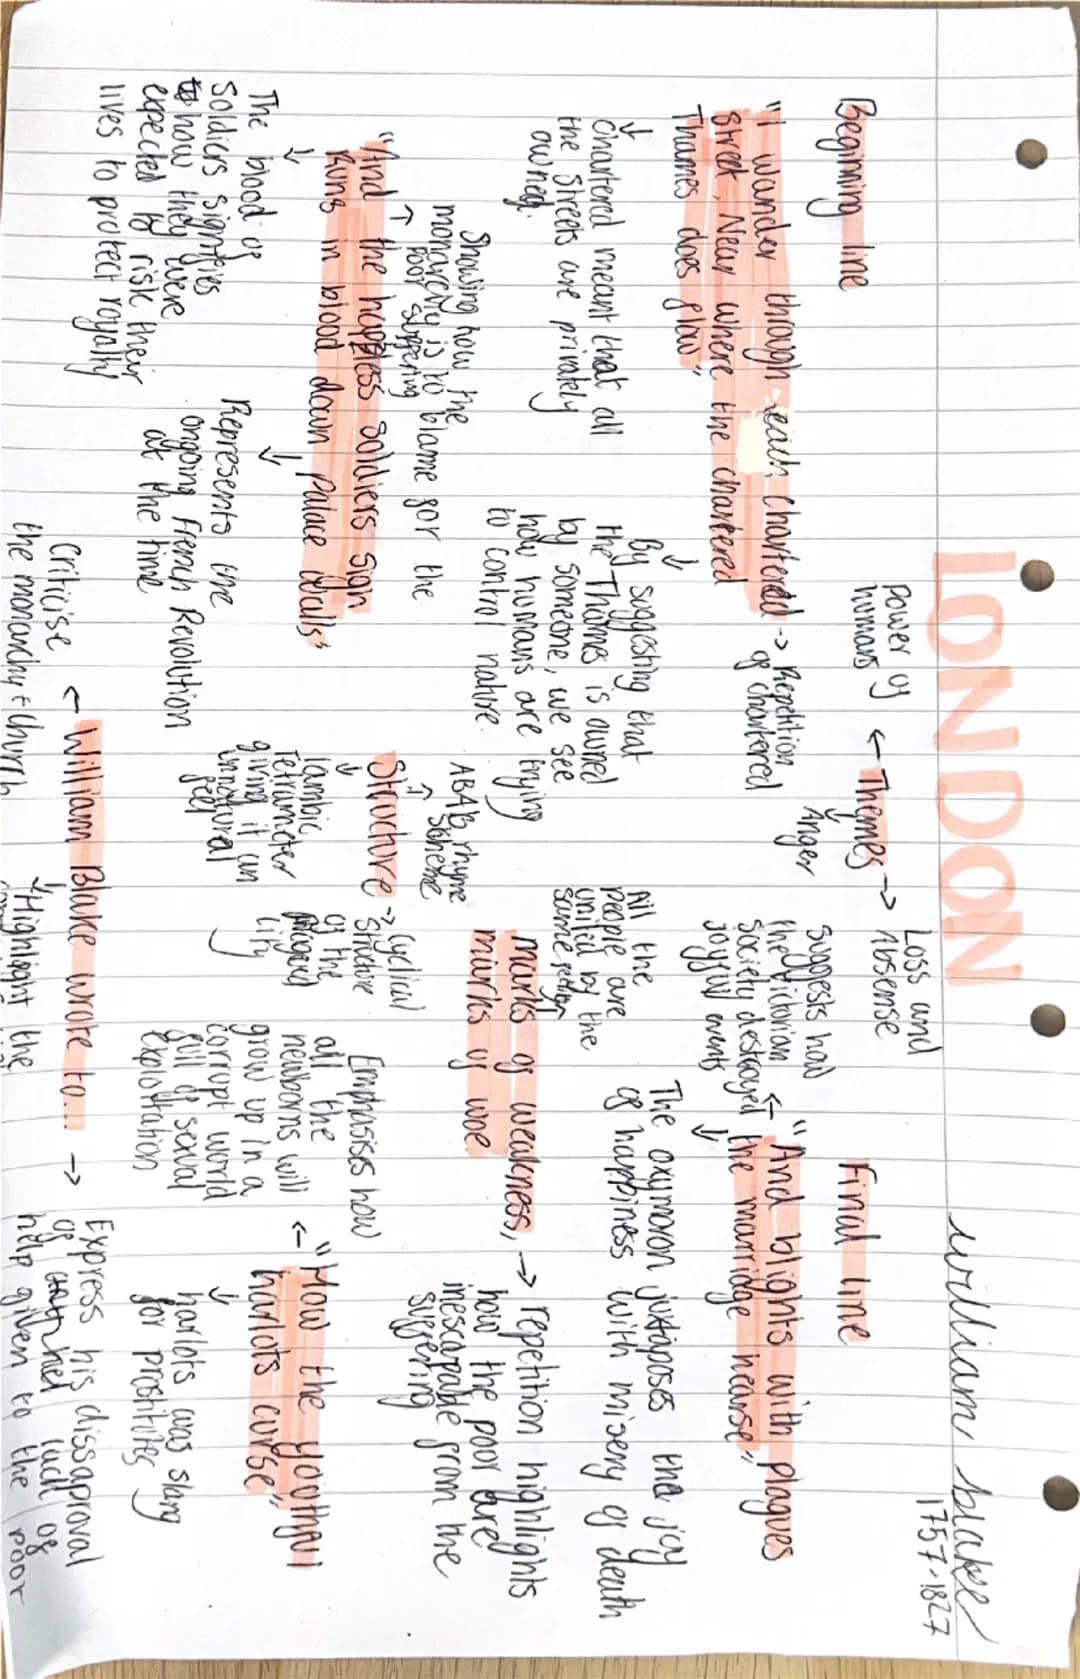 LONDON
William Blake
1757-1827
Power of
humans
← Themes →
Anger
Loss and
Absense
Beginning line
"I wander through each chartered
street, Near where the chartered
Thames does flow"
→ Repetition
of chartered
Chartered meant that all
the streets are privately
owned.
By suggesting that
the Thames is owned
by someone, we see
how humans are trying
to control nature.
Showing how the
monarchy is to blame for the
poor suffering
"And the hapless soldiers sigh
Runs in blood down palace walls"
The blood of
soldiers signifies
how they were
expected to risk their
lives to protect royalty
Represents the
ongoing French Revolution
at the time
ABAB rhyme
scheme
Structure
Iambic
Tetrameter
giving it an
unnatural
feel
→ Cyclical
structure
of the
city
Final line
"And blights with plagues
the marriage hearse"
Suggests how
the Victorian
society destroyed
joyful events
The oxymoron juxtaposes the joy
of happiness with misery of death
All the
people are
united by the
same
marks of weakness,
marks of woe
→ repetition highlights
how the poor are
inescapable from the
suffering
"How the youthful
harlots curse"
Emphasises how
all the
newborns will
grow up in a
corrupt world
full of sexual
exploitation
harlots was slang
for prostitutes
William Blake wrote to... →
Criticise ←
the monarchy + church
Highlight the
Express his dissaproval
of lack of
help given to the poor